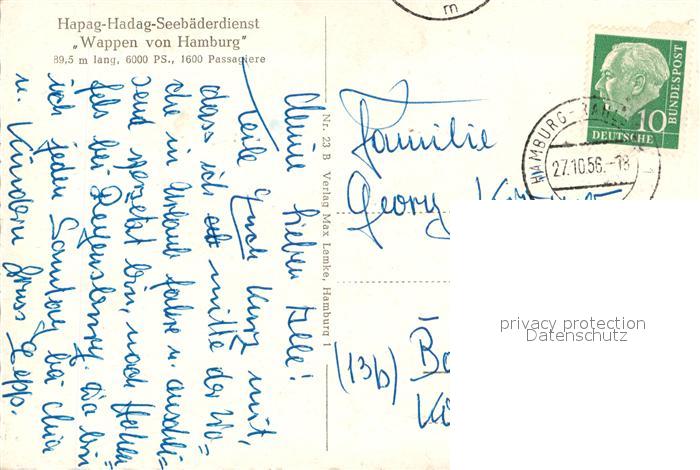 Hapag-Hadag-Seebäderdienst
„Wappen von Hamburg"
89,5 m lang, 6000 PS., 1600 Passagiere
Meine lieben Alle!
Teile Euch kurz mit,
dass ich ab mitte der Wo-
che in Urlaub fahre u. anschli-
send versetzt bin, nach Hohen-
fels bei Regensburg. Da bin
ich jeden Sonntag bei
u. Kindern Gruss Sepp.
Nr. 23 B Verlag Max Lemke, Hamburg 1
m
DEUTSCHE
BUNDESPOST
10
HAMBURG-BAH
27.10.56.-18
Familie
Georg
(13b)
privacy protection
Datenschutz